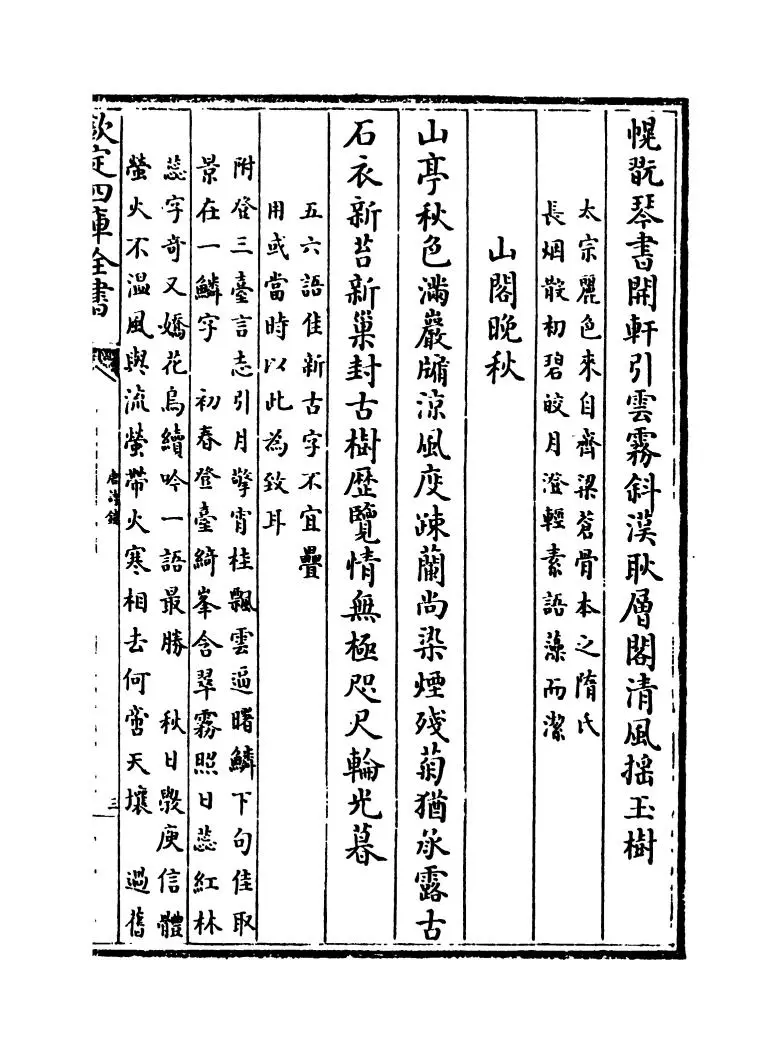 幌翫琴書開軒引雲霧斜漢耿層閣清風揺玉樹
太宗麗色來自齊梁蒼骨本之隋氏
長烟散初碧皎月澄輕素語藻而潔
山閣晚秋
山亭秋色滿巖牖涼風度疎蘭尚染煙殘菊猶承露古
石衣新苔新巢封古樹歴覽情無極咫尺輪光暮
五六語佳新古字不宜疊
用或當時以此為致耳
附登三臺言志引月擎宵桂飄雲逼曙鱗下句佳取
景在一鱗字　初春登臺綺峯含翠霧照日蕊紅林
蕊字奇又嬌花鳥續吟一語最勝　秋日斆庾信體
螢火不溫風與流螢帶火寒相去何啻天壤　過舊
欽定四庫全書
唐詩鏡
三